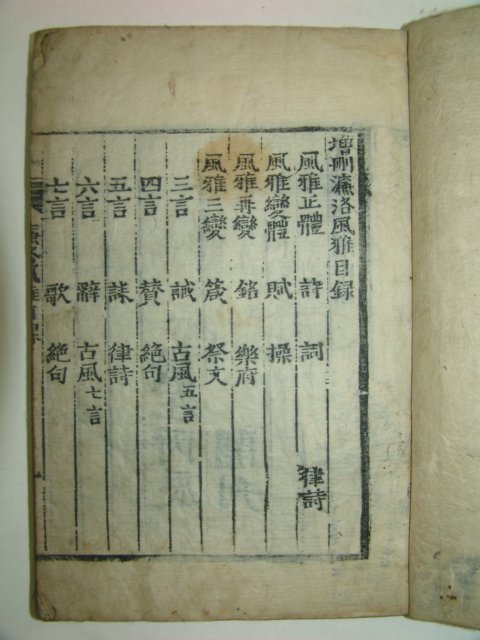 增刪濂洛風雅目録
風雅正體 詩 詞 律詩
風雅變體 賦 操
風雅再變 銘 樂府
風雅三變 箴 祭文
三言 誡 古風五言
四言 贊 絶句
五言 誄 律詩
六言 辭 古風七言
七言 歌 絶句